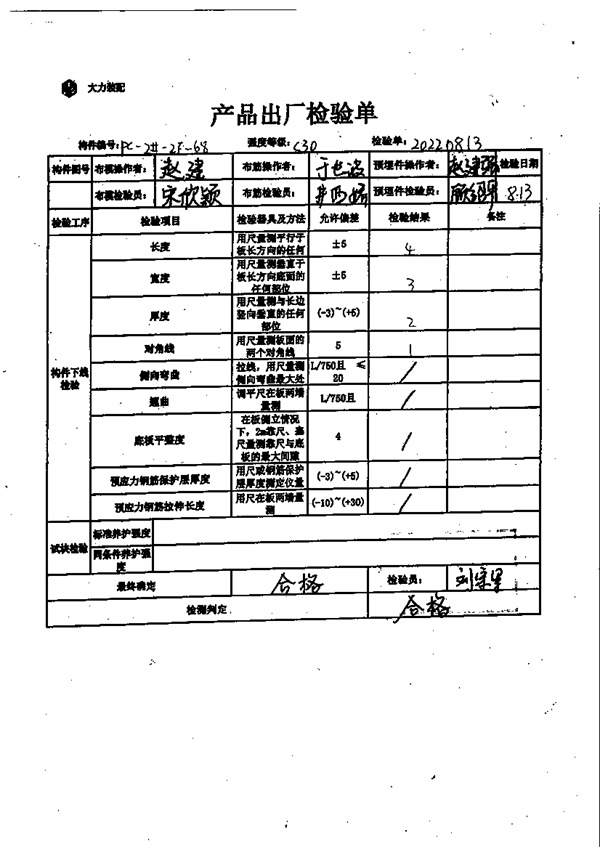 大力装配
产品出厂检验单
构件编号: PC-2#-2F-68 强度等级: C30 检验单: 20220813
构件图号 布模操作者: 赵建 布筋操作者: 预埋件操作者: 赵建强 检验日期
布模检验员: 宋欣颖 布筋检验员: 预埋件检验员: 8.13
检验工序 检验项目 检验器具及方法 允许偏差 检验结果 备注
构件下线检验
长度 用尺量测平行于板长方向的任何 ±5 4
宽度 用尺量测垂直于板长方向底面的任何部位 ±5 3
厚度 用尺量测与长边竖向垂直的任何部位 (-3)~(+5) 2
对角线 用尺量测板面的两个对角线 5 1
侧向弯曲 拉线，用尺量测侧向弯曲最大处 L/750且 ≤20 /
翘曲 调平尺在板两端量测 L/750且 /
底板平整度 在板侧立情况下，2m靠尺、塞尺量测靠尺与底板的最大间隙 4 /
预应力钢筋保护层厚度 用尺或钢筋保护层厚度测定仪量 (-3)~(+5) /
预应力钢筋拉伸长度 用尺在板两端量测 (-10)~(+30) /
试块检验 标准养护强度
同条件养护强度
最终确定 合格 检验员:
检测判定 合格